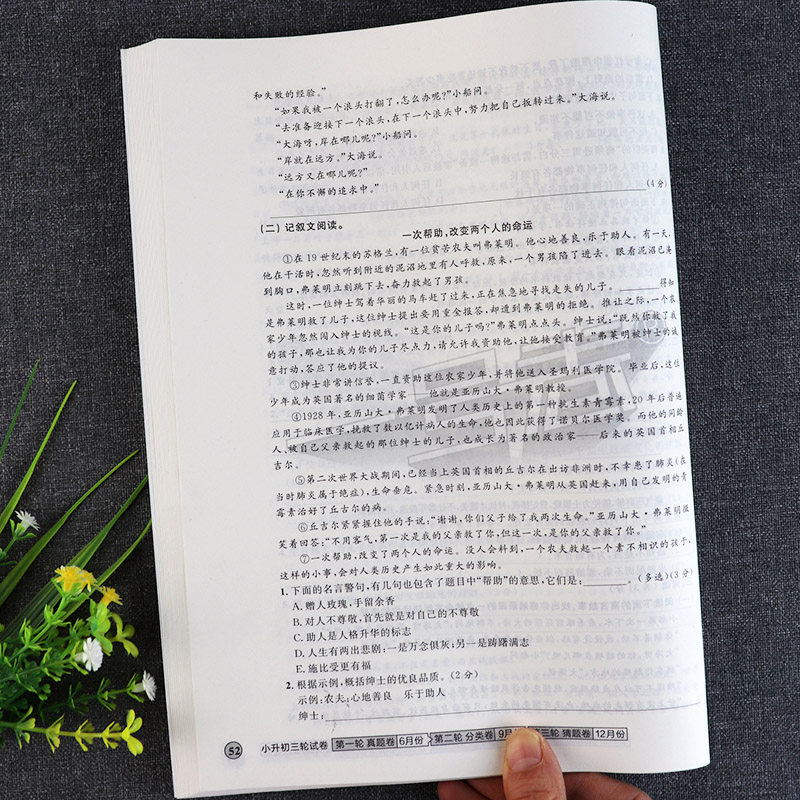 和失败的经验。”
“如果我被一个浪头打翻了,怎么办呢?”小船问。
“去准备迎接下一个浪头,在下一个浪头中,努力把自己扳转过来。”大海说。
“大海呀,岸在哪儿呢?”小船问。
“岸就在远方。”大海说。
“远方又在哪儿呢?”
“在你不懈的追求中。”
(4分)
(二)记叙文阅读。
一次帮助,改变两个人的命运
①在19世纪末的苏格兰,有一位贫苦农夫叫弗莱明。他心地善良,乐于助人。有一天,
他在干活时,忽然听到附近的泥沼地里有人呼救,原来,一个男孩陷了进去。眼看泥沼已淹
到胸口,弗莱明立刻跳下去,奋力救起了男孩。
这时,一位绅士驾着华丽的马车赶了过来,正在焦急地寻找走失的儿子。________得知
是弗莱明救了儿子,这位绅士提出要用重金报答,却遭到弗莱明的拒绝。推让之际,一个农
家少年忽然闯入绅士的视线。“这是你的儿子吗?”弗莱明点点头。绅士说:“既然你救了我
的孩子,那也让我为你的儿子尽点力,请允许我资助他,让他接受教育。”弗莱明被绅士的诚
意打动,答应了他的提议。
③绅士非常讲信誉,一直资助这位农家少年,并将他送入圣玛利医学院。毕业后,这位
少年成为英国著名的细菌学家——他就是亚历山大·弗莱明教授。
④1928年,亚历山大·弗莱明发明了人类历史上的第一种抗生素青霉素,20年后普遍
应用于临床医学,挽救了数以亿计病人的生命,他也因此获得了诺贝尔医学奖。而他的同龄
人,被自己父亲救起的那位绅士的儿子,也成长为著名的政治家——后来的英国首相丘
吉尔。
⑤第二次世界大战期间,已经当上英国首相的丘吉尔在出访非洲时,不幸患了肺炎(在
当时肺炎属于绝症),生命垂危。紧急时刻,亚历山大·弗莱明从英国赶来,用自己发明的青
霉素治好了丘吉尔的病。
⑥丘吉尔紧紧握住他的手说:“谢谢,你们父子给了我两次生命。”亚历山大·弗莱明微
笑着回答:“不用客气,第一次是我的父亲救了你,但这一次,是你的父亲救了你。”
⑦一次帮助,改变了两个人的命运。没人会料到,一个农夫救起一个素不相识的孩子,
这样的小事,会对人类历史产生如此重大的影响。
1.下面的名言警句,有几句也包含了题目中“帮助”的意思,它们是:________。(多选)(3分)
A.赠人玫瑰,手留余香
B.对人不尊敬,首先就是对自己的不尊敬
C.助人是人格升华的标志
D.人生有两出悲剧:一是万念俱灰;另一是踌躇满志
E.施比受更有福
2.根据示例,概括绅士的优良品质。(2分)
示例:农夫:心地善良 乐于助人
绅士:
52 小升初三轮试卷 第一轮 真题卷 6月份 第二轮 分类卷 9月 三轮 猜题卷 12月份